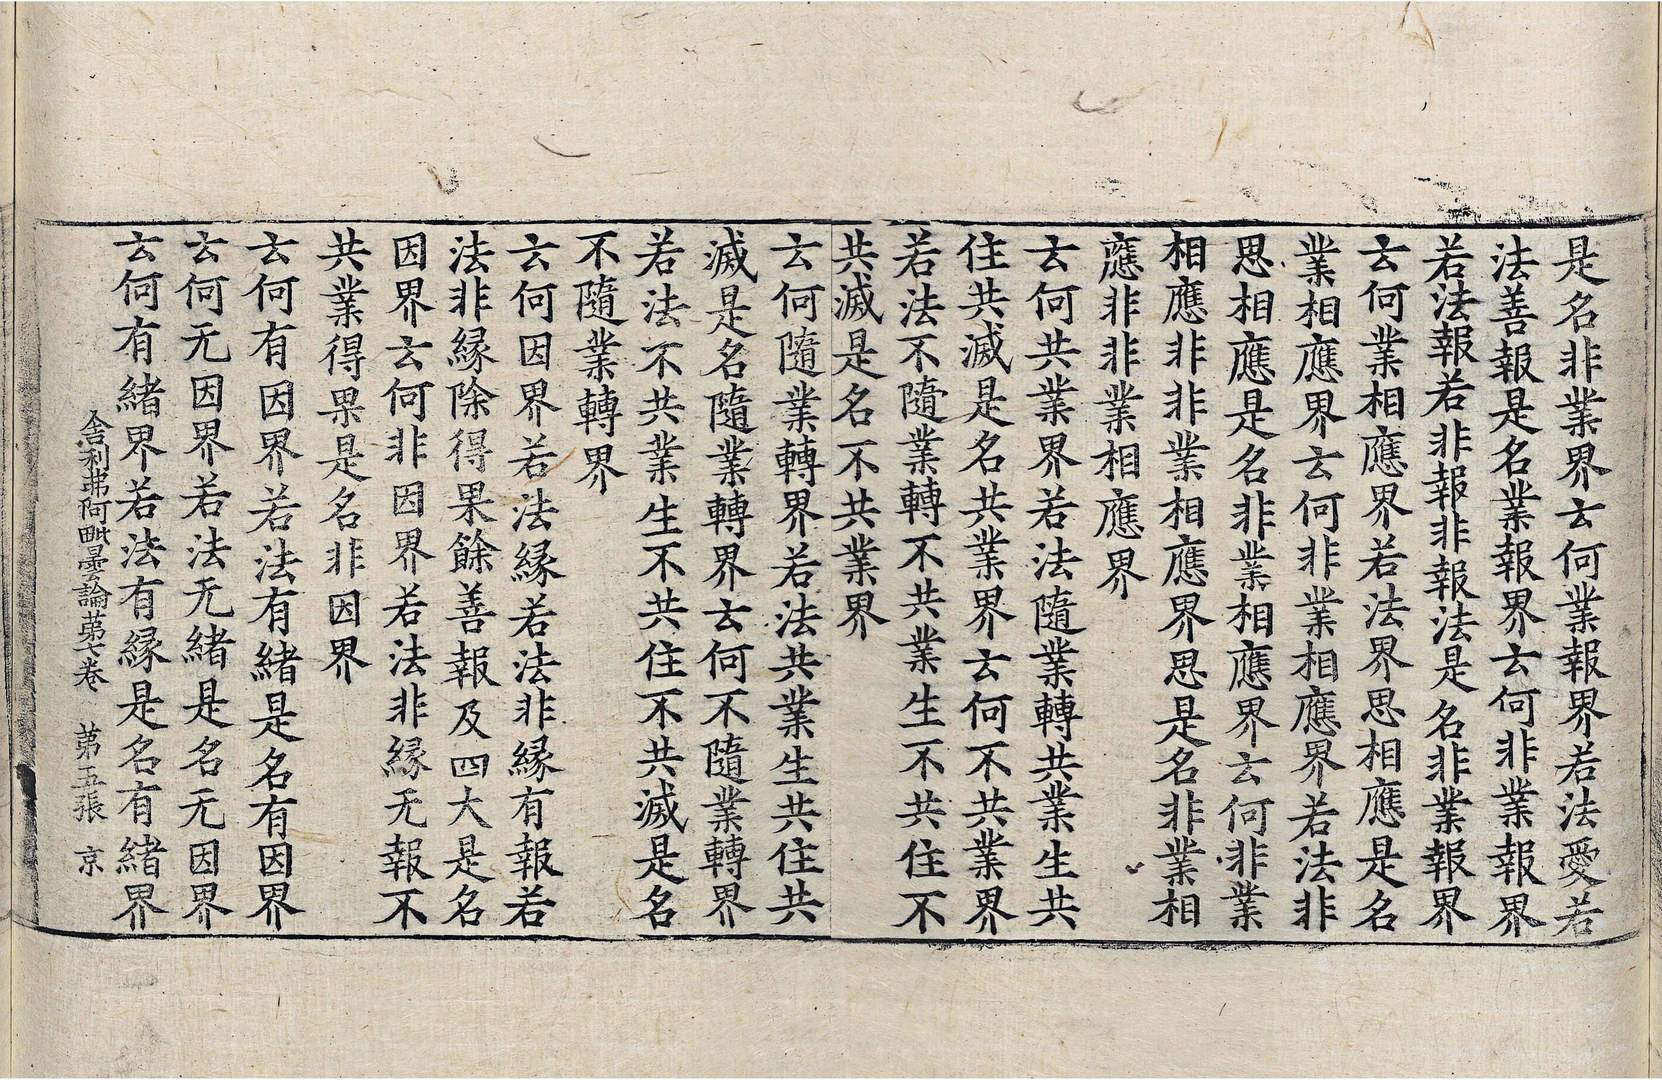 是名非業界云何業報界若法愛若
法善報是名業報界云何非業報界
若法報若非報非報法是名非業報界
云何業相應界若法界思相應是名
業相應界云何非業相應界若法非
思相應是名非業相應界云何非業
相應非非業相應界思是名非業相
應非非業相應界
云何共業界若法隨業轉共業生共
住共滅是名共業界云何不共業界
若法不隨業轉不共業生不共住不
共滅是名不共業界
云何隨業轉界若法共業生共住共
滅是名隨業轉界云何不隨業轉界
若法不共業生不共住不共滅是名
不隨業轉界
云何因界若法緣若法非緣有報若
法非緣除得果餘善報及四大是名
因界云何非因界若法非緣无報不
共業得果是名非因界
云何有因界若法有緒是名有因界
云何无因界若法无緒是名无因界
云何有緒界若法有緣是名有緒界
舍利弗阿毗曇論第七卷 第五張 京